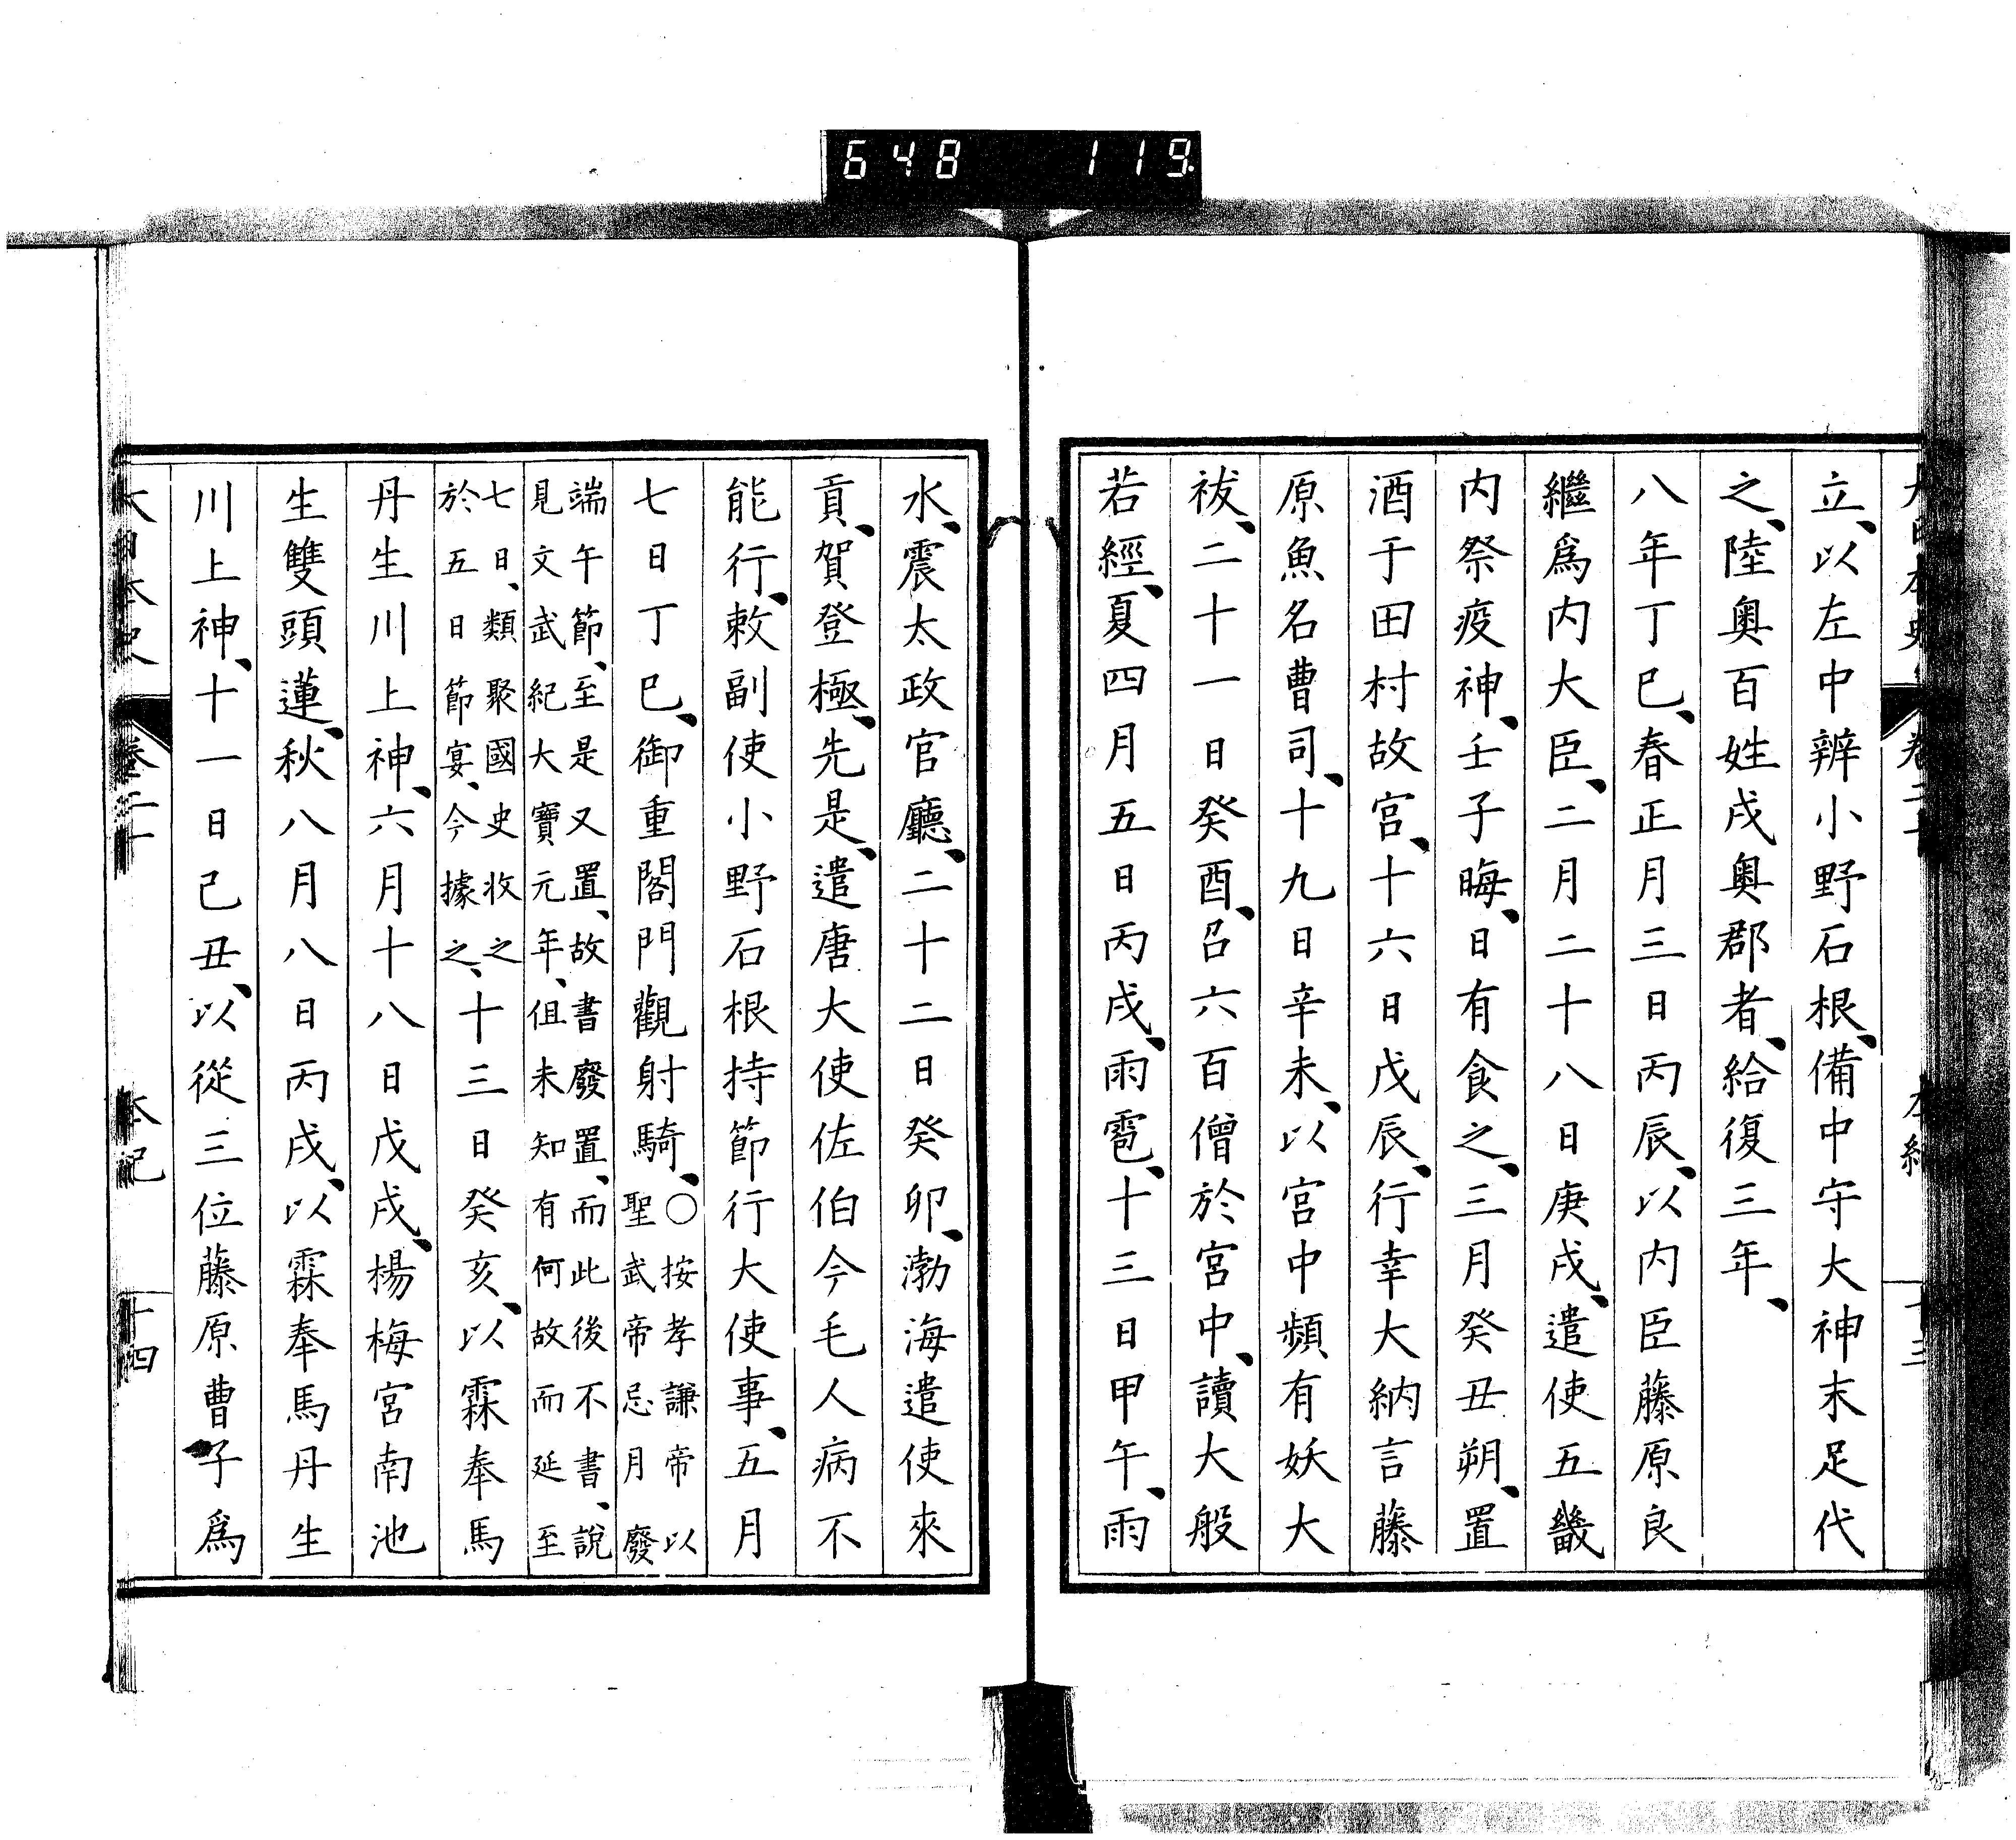 648 119
立、以左中辨小野石根、備中守大神末足代
之、陸奥百姓戍奥郡者、給復三年、
八年丁巳、春正月三日丙辰、以内臣藤原良
繼爲内大臣、二月二十八日庚戌、遣使五畿
内祭疫神、壬子晦、日有食之、三月癸丑朔、置
酒于田村故宮、十六日戊辰、行幸大納言藤
原魚名曹司、十九日辛未、以宮中頻有妖大
祓、二十一日癸酉、召六百僧於宮中、讀大般
若經、夏四月五日丙戌、雨雹、十三日甲午、雨
水、震太政官廳、二十二日癸卯、渤海遣使來
貢、賀登極、先是、遣唐大使佐伯今毛人病不
能行、敕副使小野石根持節行大使事、五月
七日丁巳、御重閣門觀射騎、〇按孝謙帝以
聖武帝忌月廢
端午節、至是又置、故書廢置、而此後不書、說
見文武紀大寶元年、但未知有何故而延至
七日、類聚國史收之
於五日節宴、今據之、十三日癸亥、以霖奉馬
丹生川上神、六月十八日戊戌、楊梅宮南池
生雙頭蓮、秋八月八日丙戌、以霖奉馬丹生
川上神、十一日己丑、以從三位藤原曹子爲
大日本史 卷二十 本紀 十四